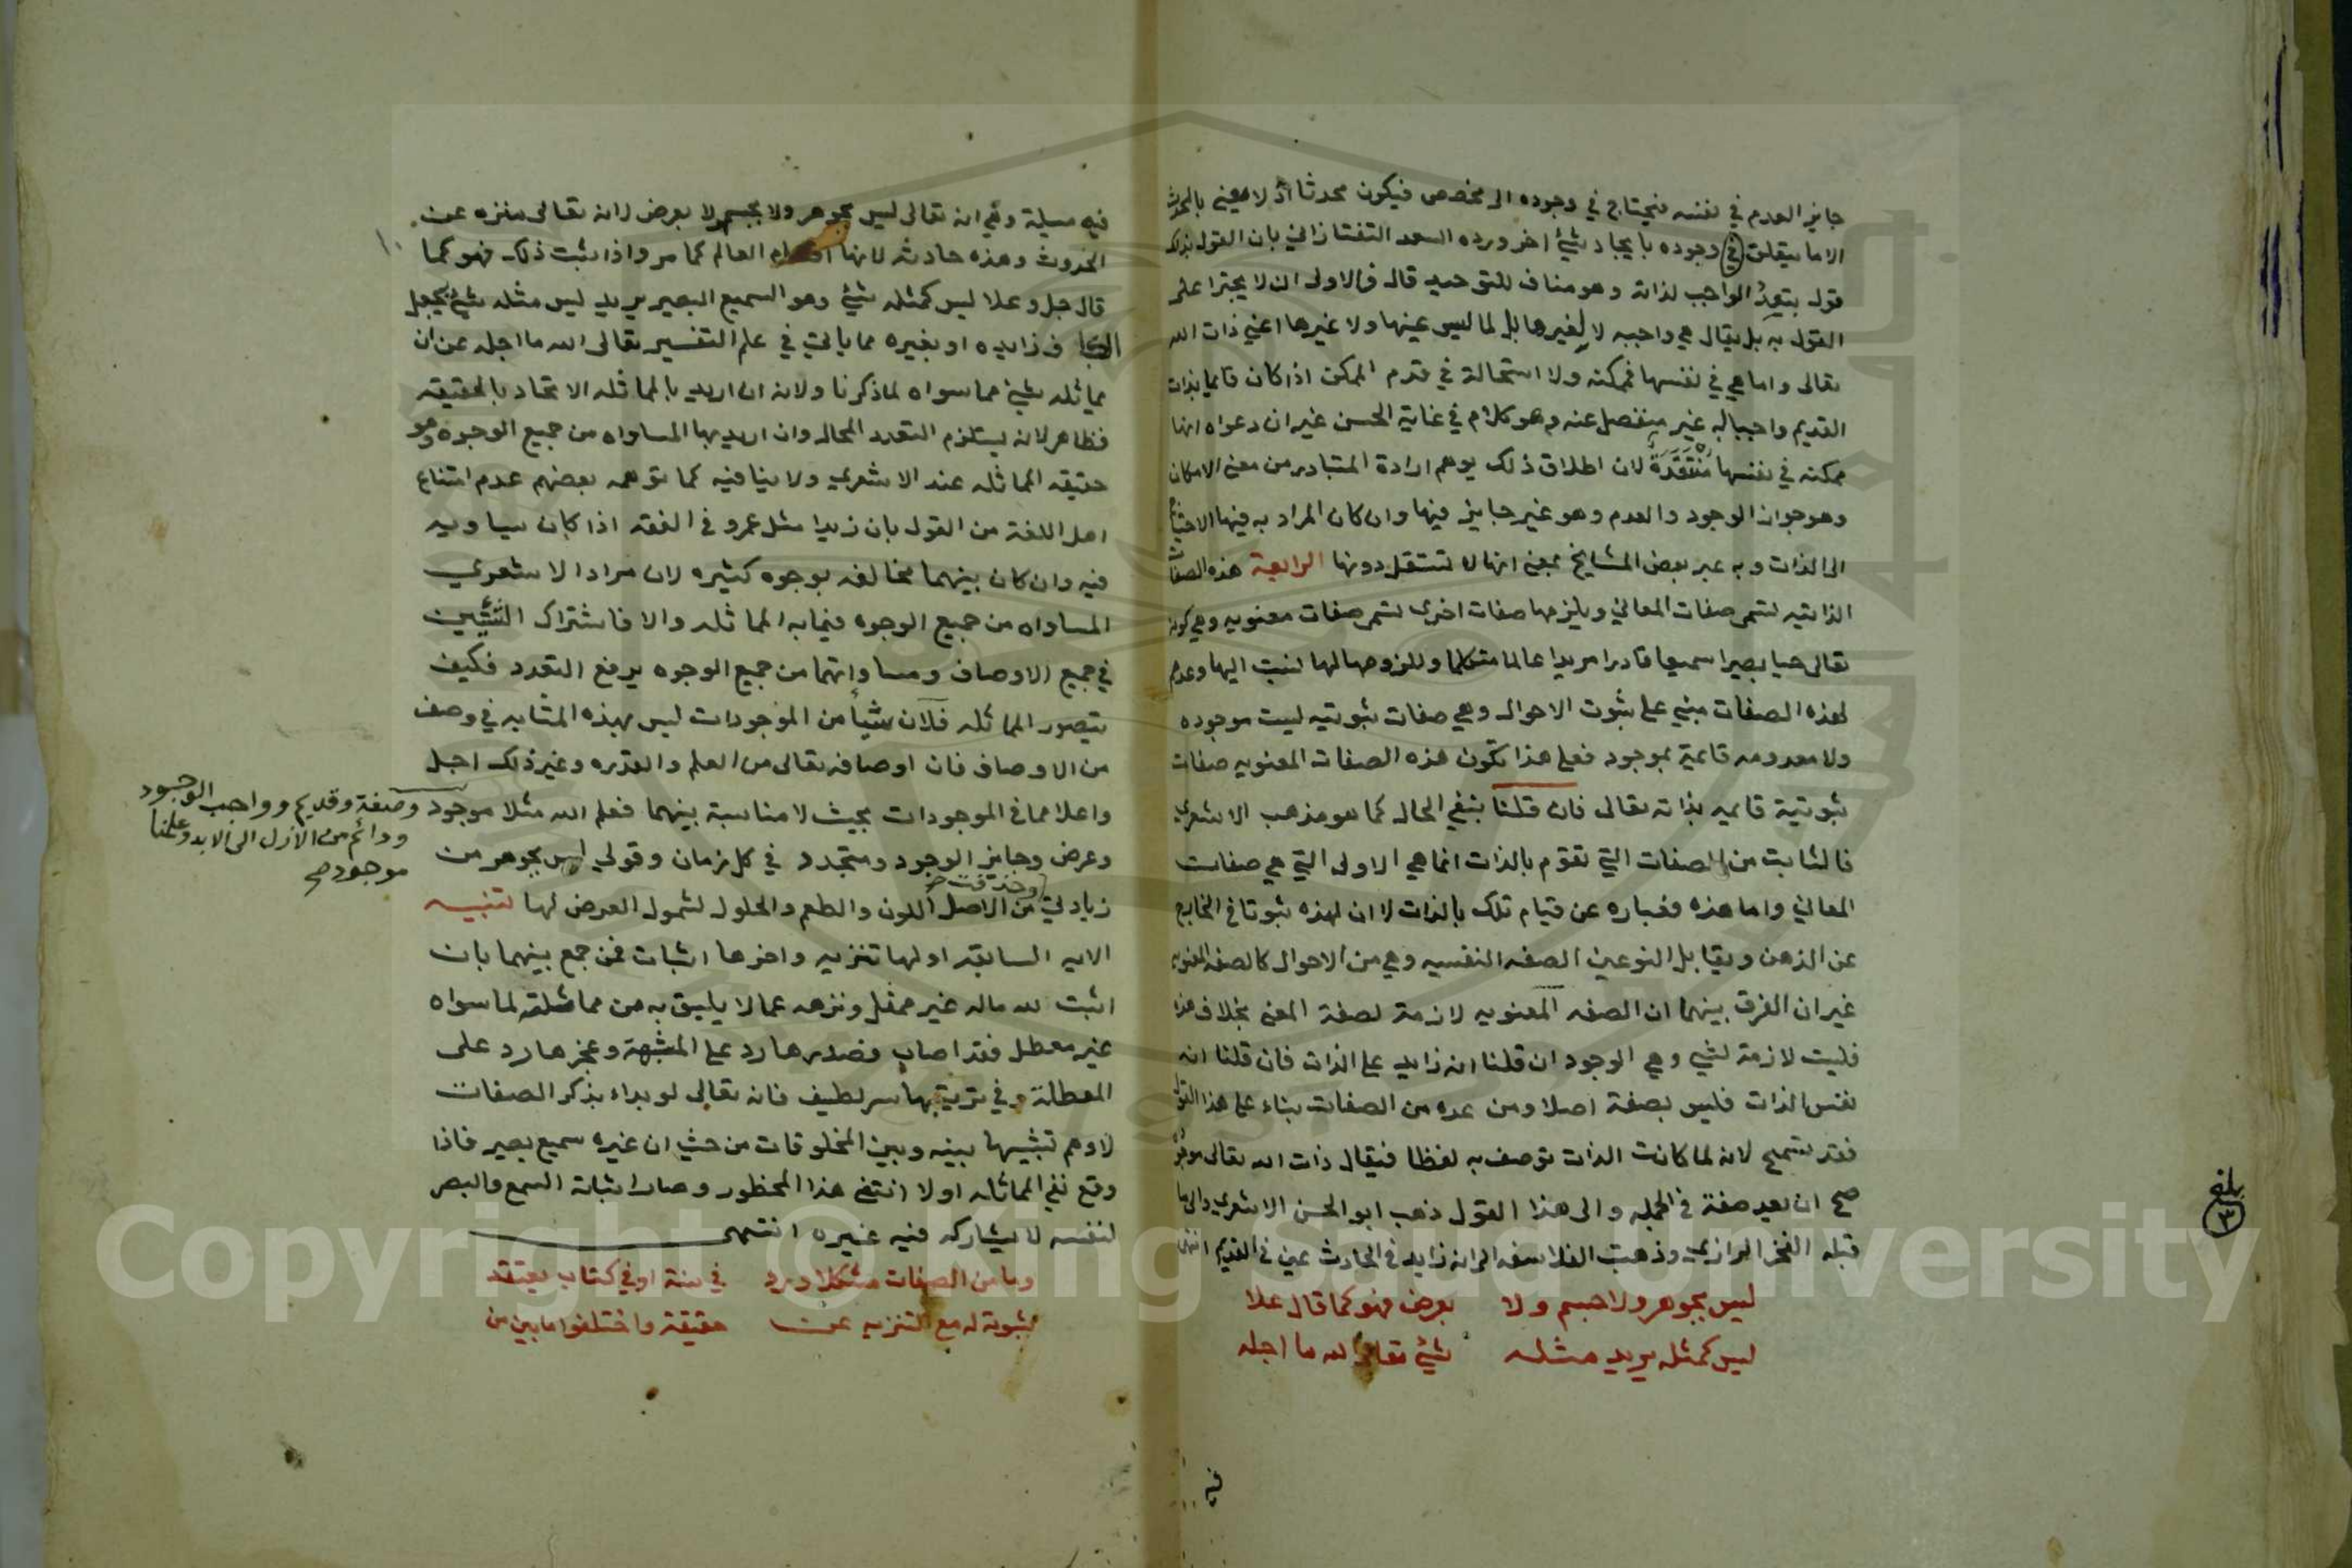 جايز العدم في نفسه فيحتاج في وجوده الى مخصص فيكون محدثا اذ لا معنى بالمحدث
الا ما يتعلق في وجوده بايجاد شئ اخر ورده السعد التفتازاني بان القول بذلك
قول بتعدد الواجب لذاته وهو مناف للتوحيد قال فالاولى ان لا يجترا على
القول به بل يقال هي واجبه لا لغيرها بل لما ليس عينها ولا غيرها اعني ذات الله
تعالى واما هي في نفسها فممكنه ولا استحالة في قدم الممكن اذا كان قايما بذات
القديم واجبا له غير منفصل عنه وهو كلام في غاية الحسن غير ان دعواه انها
ممكنه في نفسها منتقدة لان اطلاق ذلك يوهم ارادة المتبادر من معنى الامكان
وهو جواز الوجود والعدم وهو غير جايز فيها وان كان المراد به فيها الاحتياج
الى الذات وبه عبر بعض المشايخ بمعنى انها لا تستقل دونها الرابعة هذه الصفات
الذاتيه تسمى صفات المعاني ويلزمها صفات اخرى تسمى صفات معنويه وهي كونه
تعالى حيا بصيرا سميعا قادرا مريدا عالما متكلما وللزومها لها نسبت اليها وعدم
لهذه الصفات مبني على ثبوت الاحوال وهي صفات ثبوتيه ليست موجوده
ولا معدومه قائمة بموجود فعلى هذا تكون هذه الصفات المعنويه صفات
ثبوتية قايمه بذاته تعالى فان قلنا بنفي الحال كما هو مذهب الاشعري
فالثابت من الصفات التي تقوم بالذات انما هي الاولى التي هي صفات
المعاني واما هذه فعباره عن قيام تلك بالذات لا ان لهذه ثبوتا في الخارج
عن الذهن ويقابل النوعين الصفه النفسيه وهي من الاحوال كالصفه المعنويه
غير ان الفرق بينهما ان الصفه المعنويه لازمة لصفة المعنى بخلاف هذه
فليست لازمة لشي وهي الوجود ان قلنا انه زايد على الذات فان قلنا انه
نفس الذات فليس بصفة اصلا ومن عده من الصفات بناء على هذا القول
فقد تسمح لانه لما كانت الذات توصف به لفظا فيقال ذات الله تعالى موجودة
صح ان يعد صفة في الجمله والى هذا القول ذهب ابو الحسن الاشعري والى ما
قبله الفخر الرازي وذهبت الفلاسفه الى انه زايد في الحادث عين في القديم انتهى
ليس بجوهر ولا جسم ولا بعرض فهو كما قال علا
ليس كمثله يريد مثله شئ تعالى الله ما اجله
بلغ
٣
فيه مسيلة وهي انه تعالى ليس بجوهر ولا بجسم ولا بعرض لانه تعالى منزه عن
الحدوث وهذه حادثه لانها اقسام العالم كما مر واذا ثبت ذلك فهو كما
قال جل وعلا ليس كمثله شئ وهو السميع البصير يريد ليس مثله شئ بجعل
الكاف زايده او بغيره مما ياتي في علم التفسير تعالى الله ما اجله عن ان
يماثله شئ مما سواه لما ذكرنا ولانه ان اريد بالمماثله الاتحاد بالحقيقه
فظاهر لانه يستلزم التعدد المحال وان اريد بها المساواه من جميع الوجوه وهو
حقيقه المماثله عند الاشعري ولا ينافيه كما توهمه بعضهم عدم امتناع
اهل اللغة من القول بان زيدا مثل عمرو في الفقه اذا كان يساويه
فيه وان كان بينهما مخالفه بوجوه كثيره لان مراد الاشعري
المساواه من جميع الوجوه فيما به المماثله والا فاشتراك الشيئين
في جميع الاوصاف ومساواتهما من جميع الوجوه يرفع التعدد فكيف
يتصور المماثله فلان شيأ من الموجودات ليس بهذه المثابه في وصف
من الاوصاف فان اوصافه تعالى من العلم والقدره وغير ذلك اجل
واعلا مما في الموجودات بحيث لا مناسبة بينهما فعلم الله مثلا موجود
وصفة وقديم وواجب الوجود
ودائم من الازل الى الابد وعلمنا
موجود صح
وعرض وجايز الوجود ومتجدد في كل زمان وقولي ليس بجوهر من
زيادتي وحذفت صح من الاصل اللون والطعم والحلول لشمول العرض لها تنبيه
الايه السابقه اولها تنزيه واخرها اثبات فمن جمع بينهما بان
اثبت لله ماله غير ممثل ونزهه عما لا يليق به من مماثلته لما سواه
غير معطل فقد اصاب فصدرها رد على المشبهة وعجزها رد على
المعطلة وفي ترتيبها سر لطيف فانه تعالى لو بداء بذكر الصفات
لاوهم تشبيها بينه وبين المخلوقات من حيث ان غيره سميع بصير فاذا
وقع نفي المماثله اولا انتفى هذا المحظور وصار اثبات السمع والبصر
لنفسه لا يشاركه فيه غيره انتهى
وما من الصفات مشكلا ورد في سنة او في كتاب يعتقد
ثبوته له مع التنزيه عن حقيقة واختلفوا ما بين من